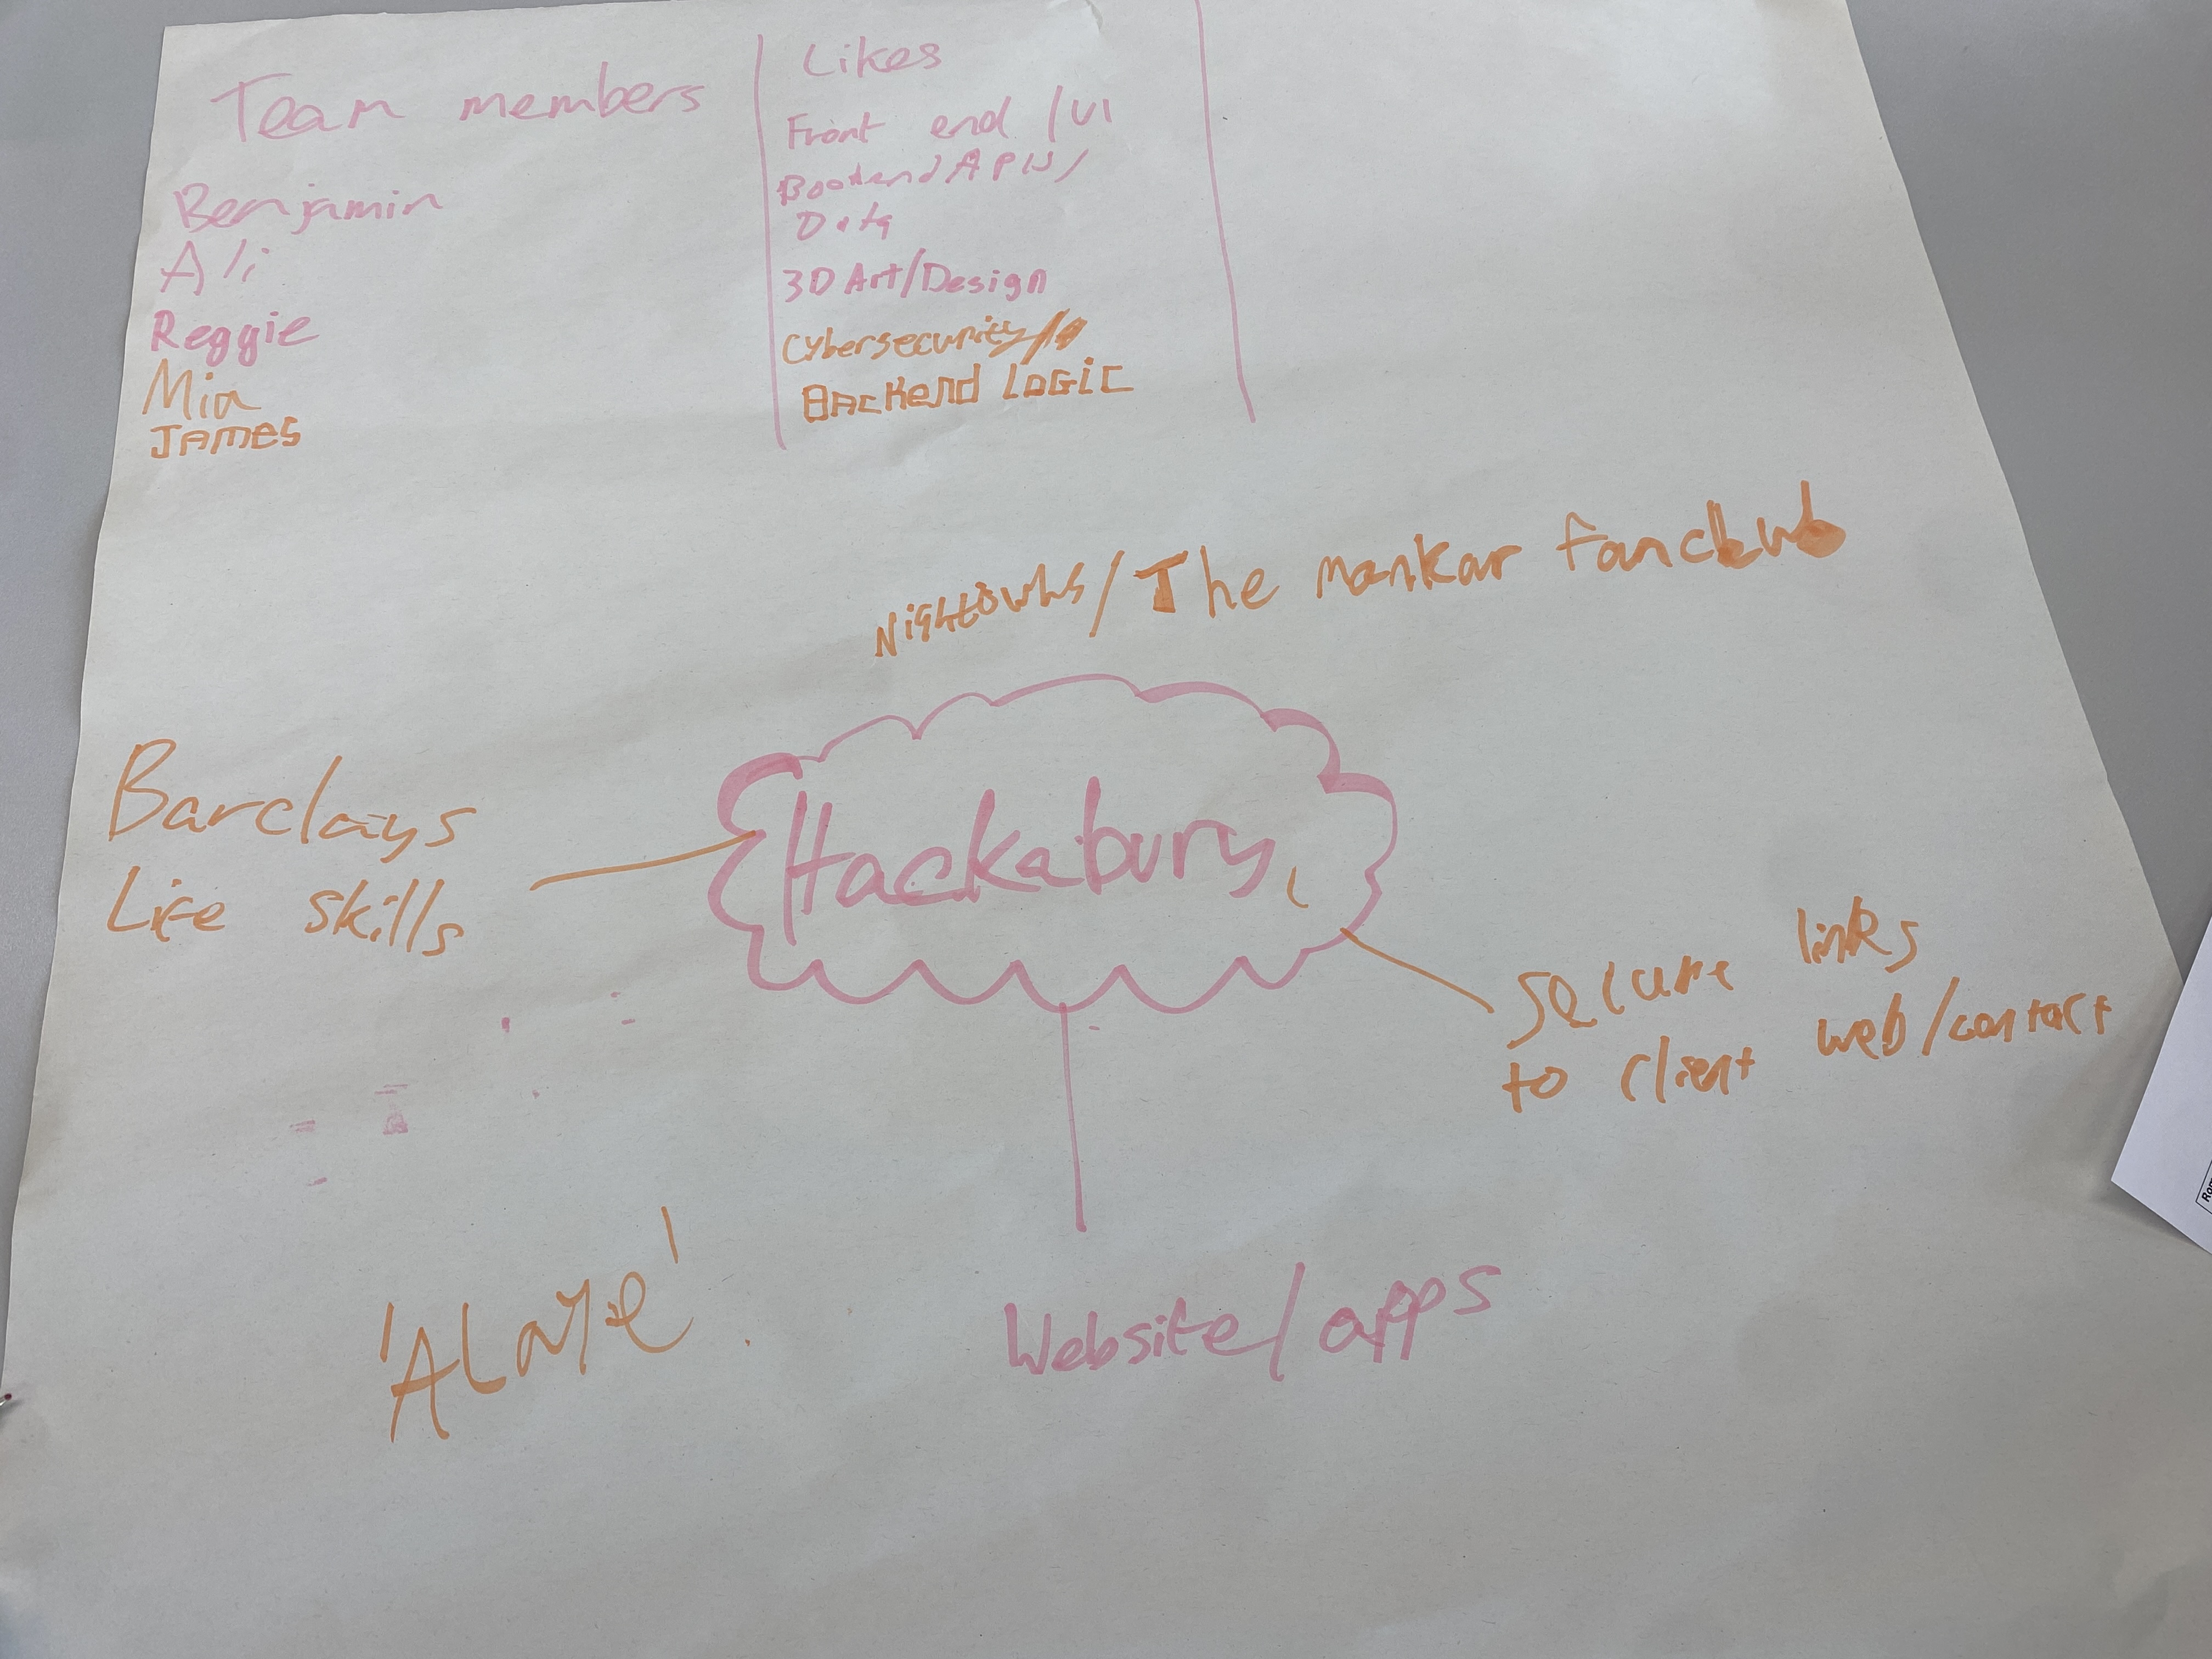 Team members
Benjamin
Ali
Reggie
Mia
JAMES
Likes
Front end / UI
Backend APIs/
Data
3D Art/Design
Cybersecurity/
BACKEnd LOGIC
NiGHTOWLS / The mankar fanclub
Hackabury
Barclays
Life skills
Secure links
to client web/contact
Website/apps